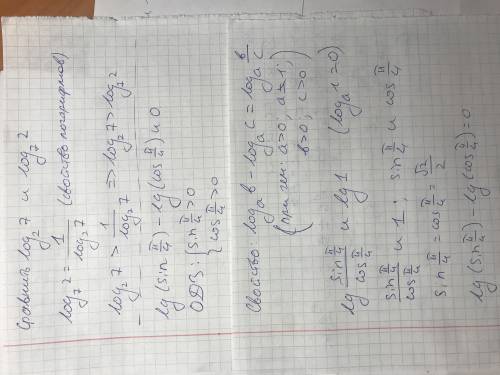 Сравнить log₂ 7 и log₇ 2
log₇ 2 = 1/log₂ 7 (свойство логарифмов)
log₂ 7 > 1/log₂ 7 => log₂ 7 > log₇ 2
lg (sin π/4) - lg (cos π/4) и 0
ОДЗ: { sin π/4 > 0
cos π/4 > 0
Свойство: logₐ b - logₐ c = logₐ b/c
(при чем: a>0; a≠1;
b>0; c>0)
lg (sin π/4)/(cos π/4) и lg 1 (logₐ 1 = 0)
(sin π/4)/(cos π/4) и 1; sin π/4 и cos π/4
sin π/4 = cos π/4 = √2/2
lg (sin π/4) - lg (cos π/4) = 0